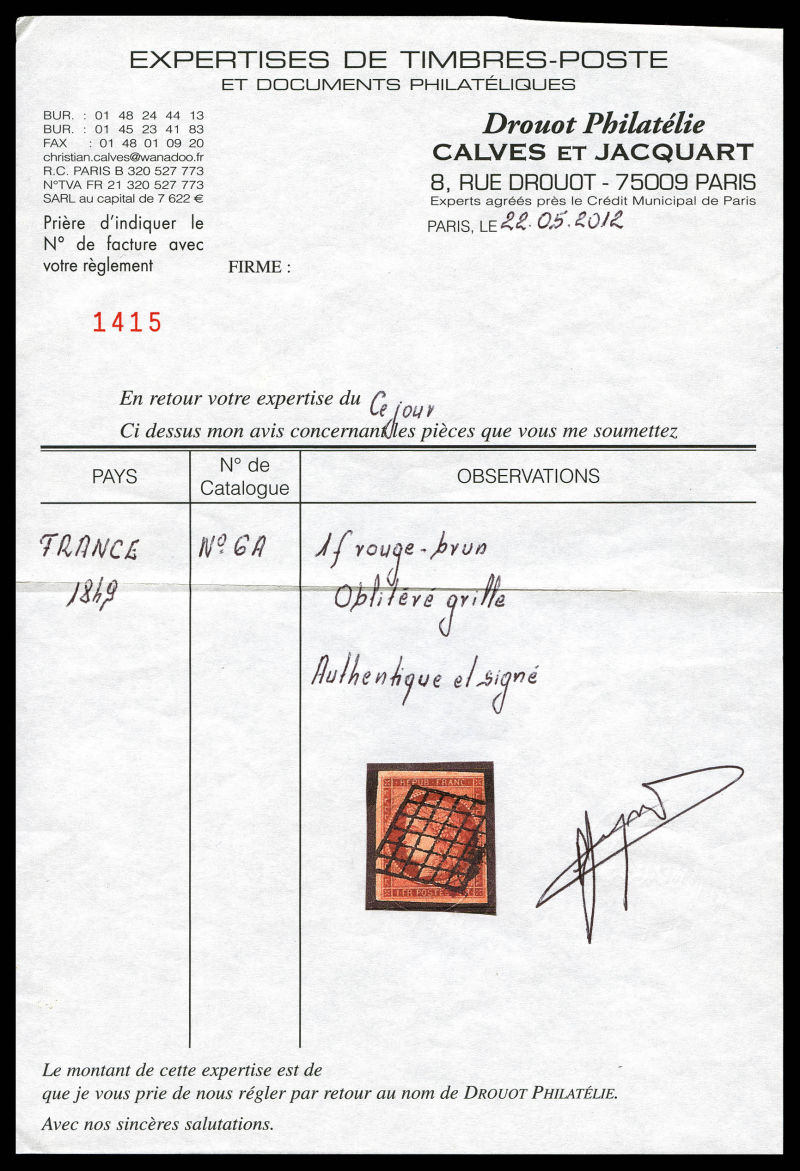 EXPERTISES DE TIMBRES-POSTE
ET DOCUMENTS PHILATÉLIQUES
BUR. : 01 48 24 44 13
BUR. : 01 45 23 41 83
FAX : 01 48 01 09 20
christian.calves@wanadoo.fr
R.C. PARIS B 320 527 773
N°TVA FR 21 320 527 773
SARL au capital de 7 622 €
Prière d'indiquer le
N° de facture avec
votre règlement
Drouot Philatélie
CALVES ET JACQUART
8, RUE DROUOT - 75009 PARIS
Experts agréés près le Crédit Municipal de Paris
PARIS, LE 22.05.2012
FIRME :
1415
En retour votre expertise du Ce jour
Ci dessus mon avis concernant les pièces que vous me soumettez
PAYS N° de Catalogue OBSERVATIONS
FRANCE N° 6A 1f rouge-brun
1849 Oblitéré grille
Authentique et signé
REPUB. FRANC.
1 FR POSTE
Le montant de cette expertise est de
que je vous prie de nous régler par retour au nom de DROUOT PHILATÉLIE.
Avec nos sincères salutations.